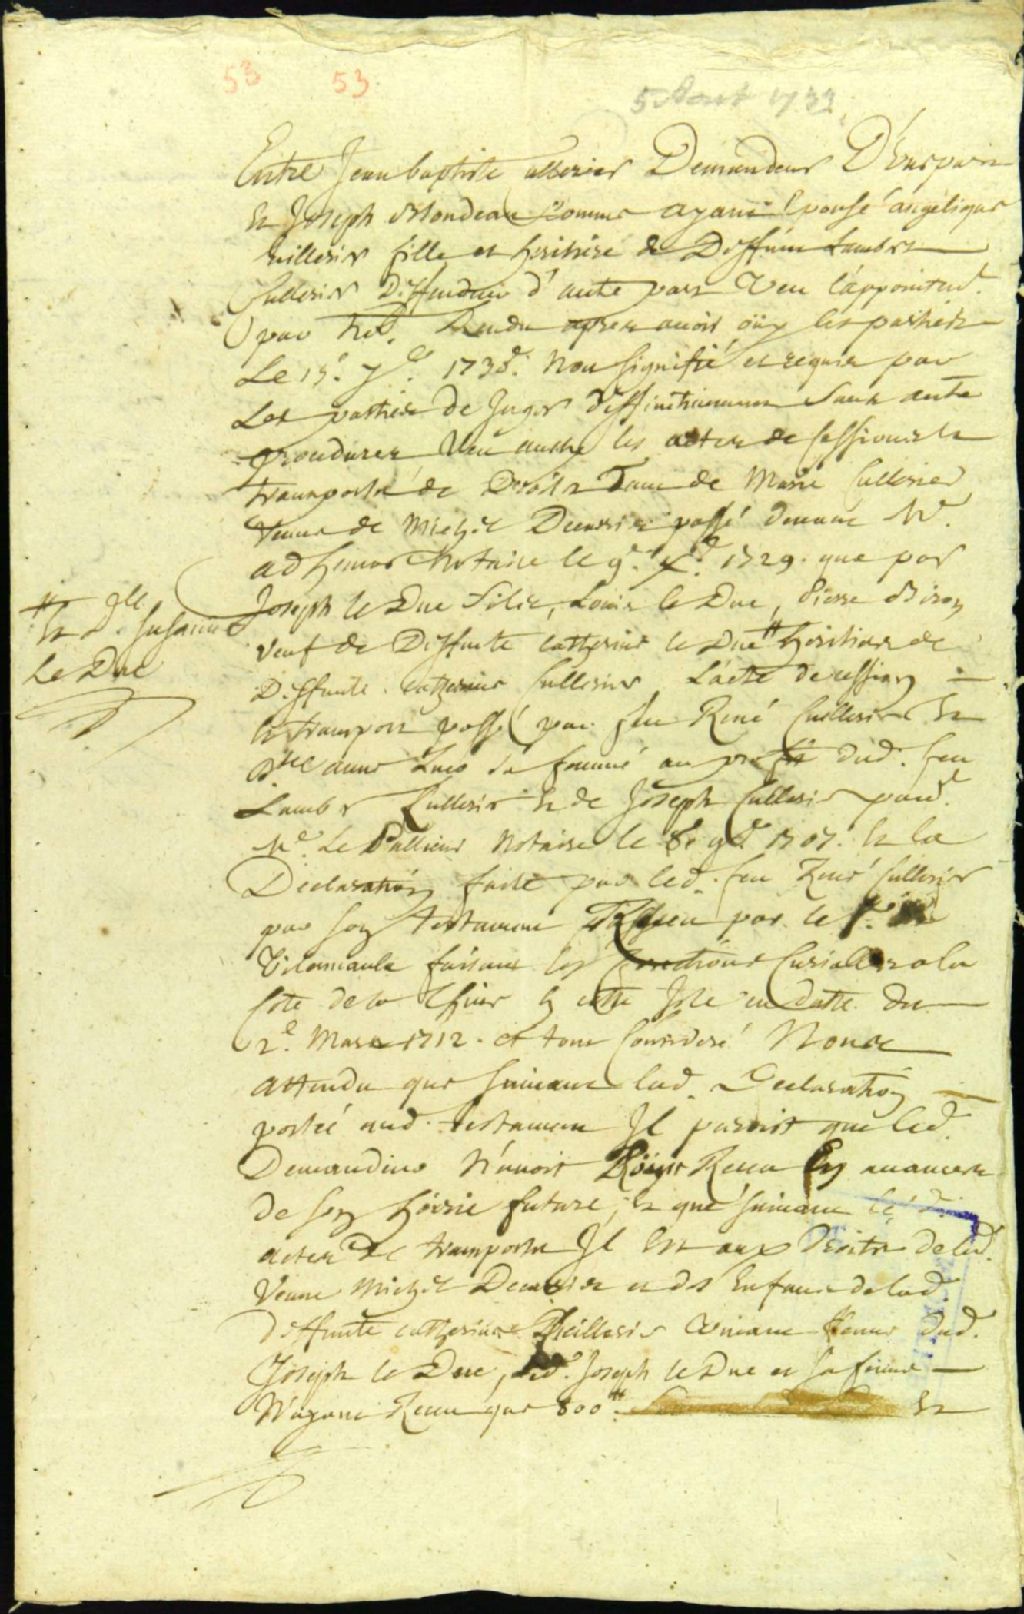 53 53
5 Aout 1732
Entre Jean baptiste Cullerier Demandeur D'une part
Et Joseph Blondeau Comme ayant Epousé angelique
Cuillerier fille et heritiere de Deffunt Lambert
Cullerier Deffendeur d'autre part Veu l'appointem.t
par Rendu apres avoir oüy les parties
Le 15.e 7.e Non signifié et requis par
Les parties de Juger deffinitivement Sans autre
procedures Veu aussy les actes de Cessions et
transports de Droits Tant de Marie Cullerier
Veuve de Michel Descarie passé devant M.e
adhemar Notaire le 9.e 1729. que par
Joseph le Duc Filie, Louis le Duc, Pierre Biron
Veuf de Deffunte Catherine le Duc # heritiers de
# Et D.lle Susanne
Le Duc
Deffunte Catherine Cullerier, L'acte de cession
et transport passé par feu René Cuillerier Et
D.lle anne Luco Sa femme au profit dud. feu
Lambert Cullerier Et de Joseph Cullerier pard.t
M.e Le Pallieur Notaire le 8.e 9.e 1707. Et la
Declaration faite par led. feu René Cullerier
par son testament par le S.r
Vilermaula faisant les fonctions Curialles a la
Coste de la Chine en cette Isle en datte du
2.e Mars 1712. et tout Consideré Nous
attendu que suivant lad. Declaration
portée aud. testament Il paroist que led.
Demandeur N'avoit Rien Receu En avancem.t
de son hoirie future, Et que suivant les d.
actes de transports Il Est aux Droits de lad.
Veuve Michel Descarie et des Enfans de lad.
deffunte Catherine Cuillerier vivante femme dud.
Joseph le Duc, Led. Joseph le Duc et sa femme
N'ayant Receu que 800.# Et